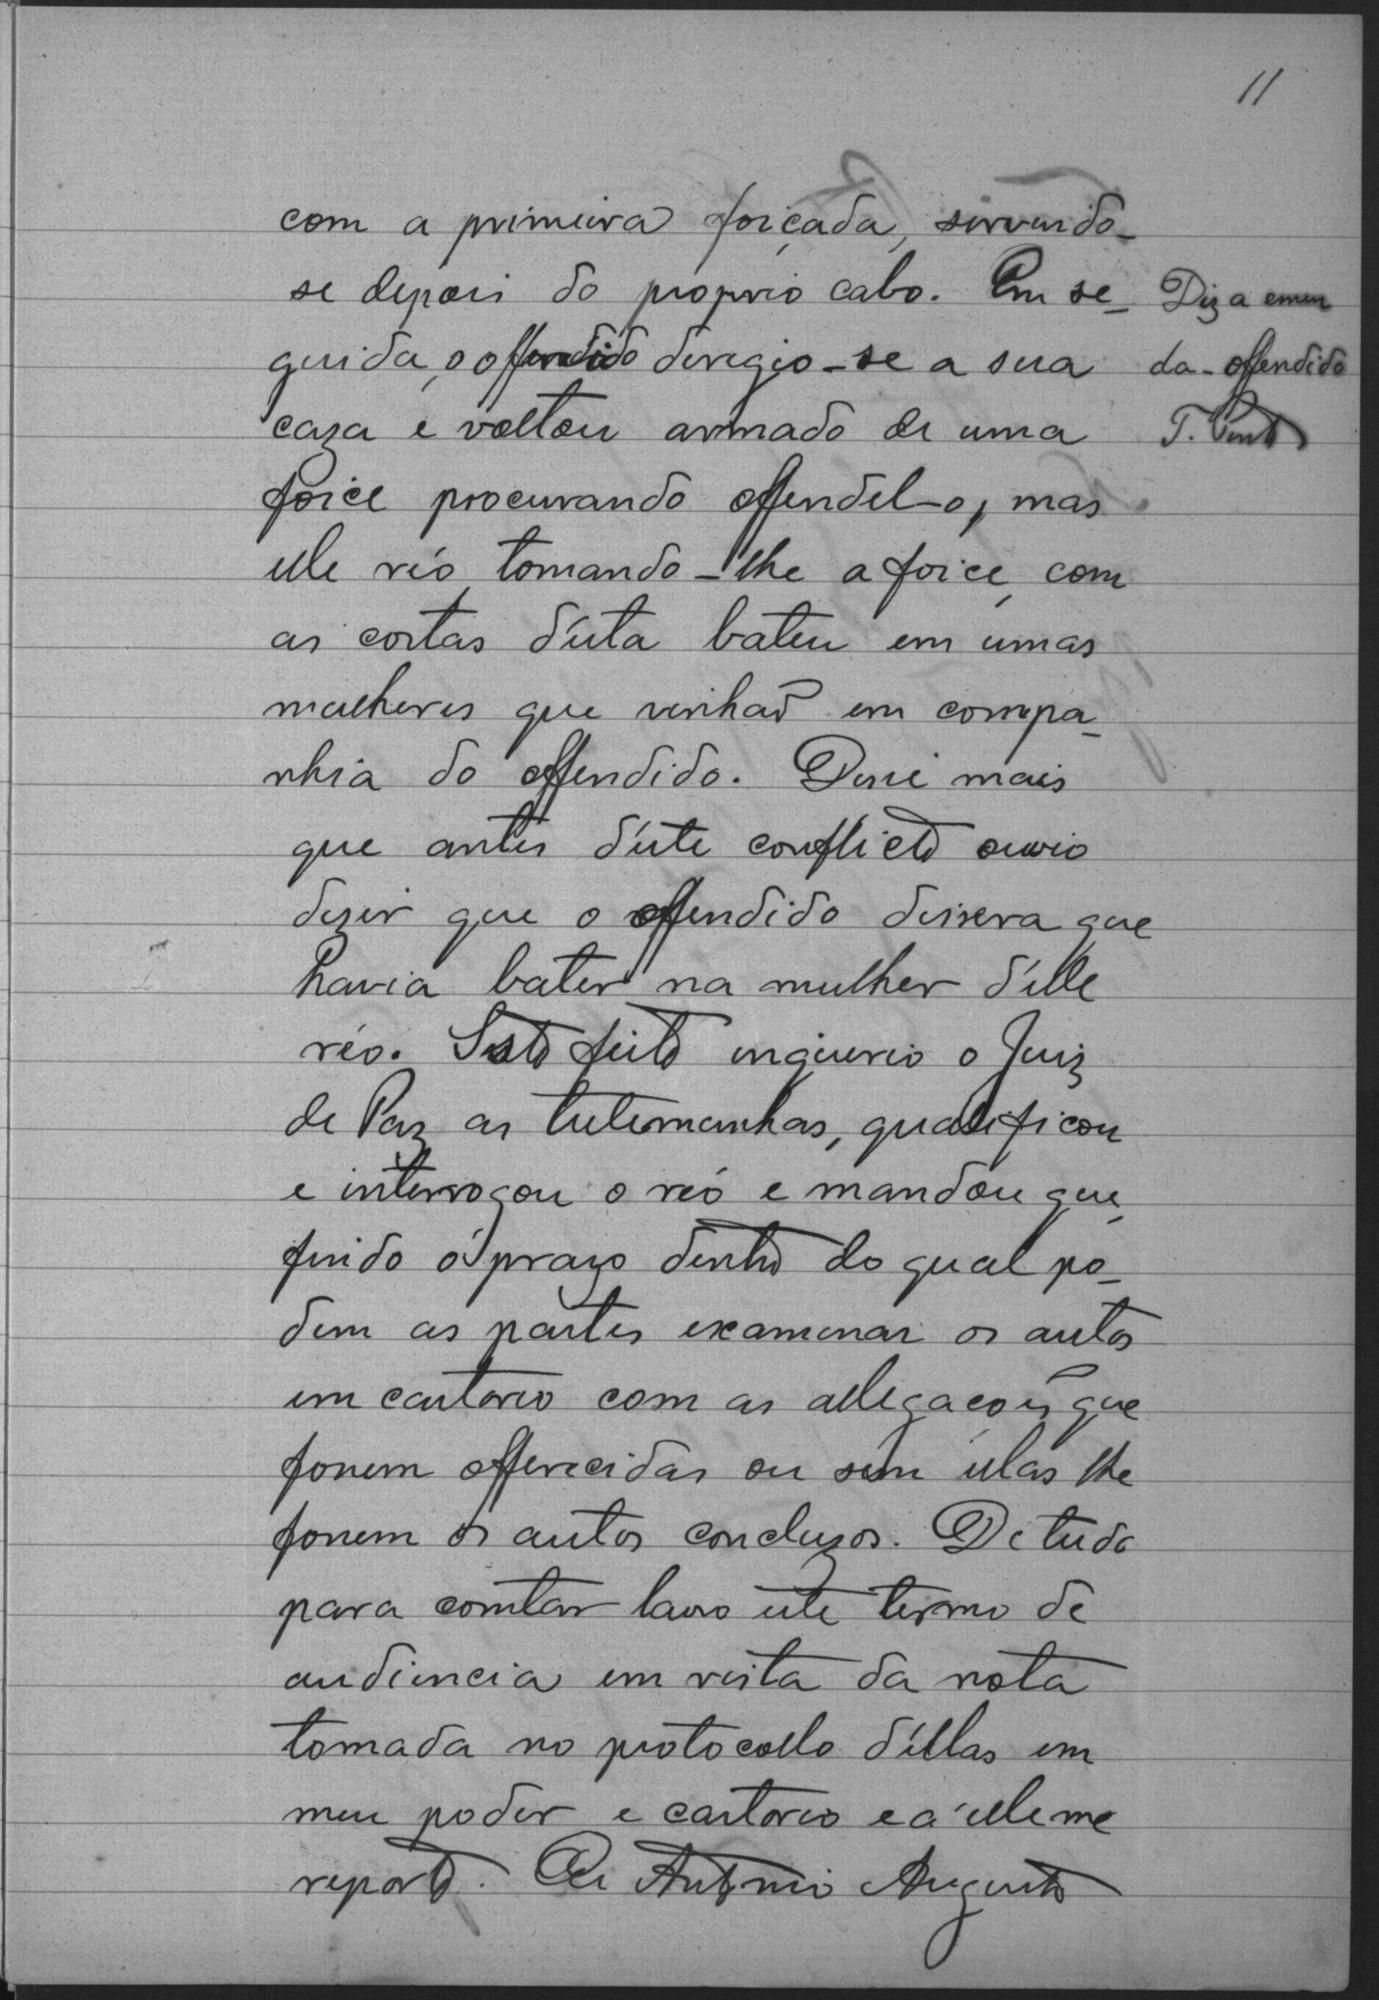 11
com a primeira foiçada, servindo-
se depois do proprio cabo. Em se-
guida, o offendido deregio-se a sua
caza e voltou armado de uma
foice procurando offendel-o, mas
elle réo, tomando-lhe a foice, com
as costas d'esta bateu em umas
mulheres que vinhaõ em compa-
nhia do offendido. Disse mais
que antes d'este conflicto ouvio
dizer que o offendido dissera que
havia bater na mulher d'elle
réo. Isto feito inquerio o Juiz
de Paz as testemunhas, qualificou
e interrogou o réo e mandou que,
findo o prazo dentro do qual po-
dem as partes examinar os autos
em cartorio com as allegaçoẽs que
forem offerecidas ou sem ellas lhe
forem os autos concluzos. De tudo
para constar lavro este termo de
audiencia em vista da nota
tomada no protocollo d'ellas em
meu poder e cartorio e a elle me
reporto. Eu Antonio Augusto
Diz a emen
da-offendido
T. Pinto